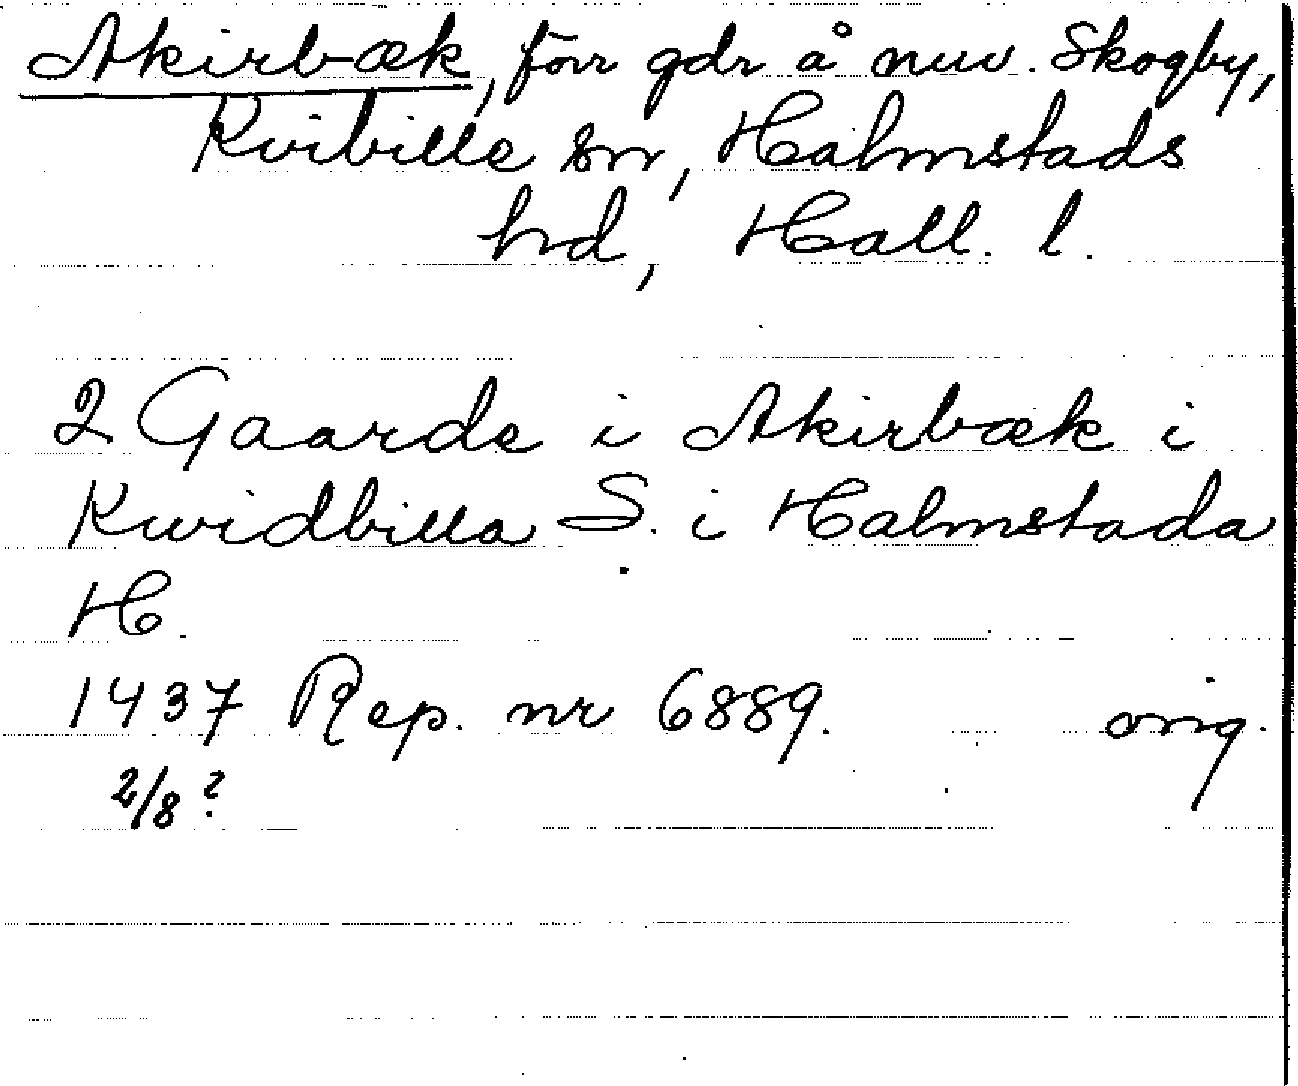 Akirbæk, förr gdr å nuv. Skogby,
Kvibille sn, Halmstads
hd, Hall. l.
2 Gaarde i Akirbæk i
Kwidbilla S. i Halmstada
H.
1437 Rep. nr 6889. orig.
2/8 ?